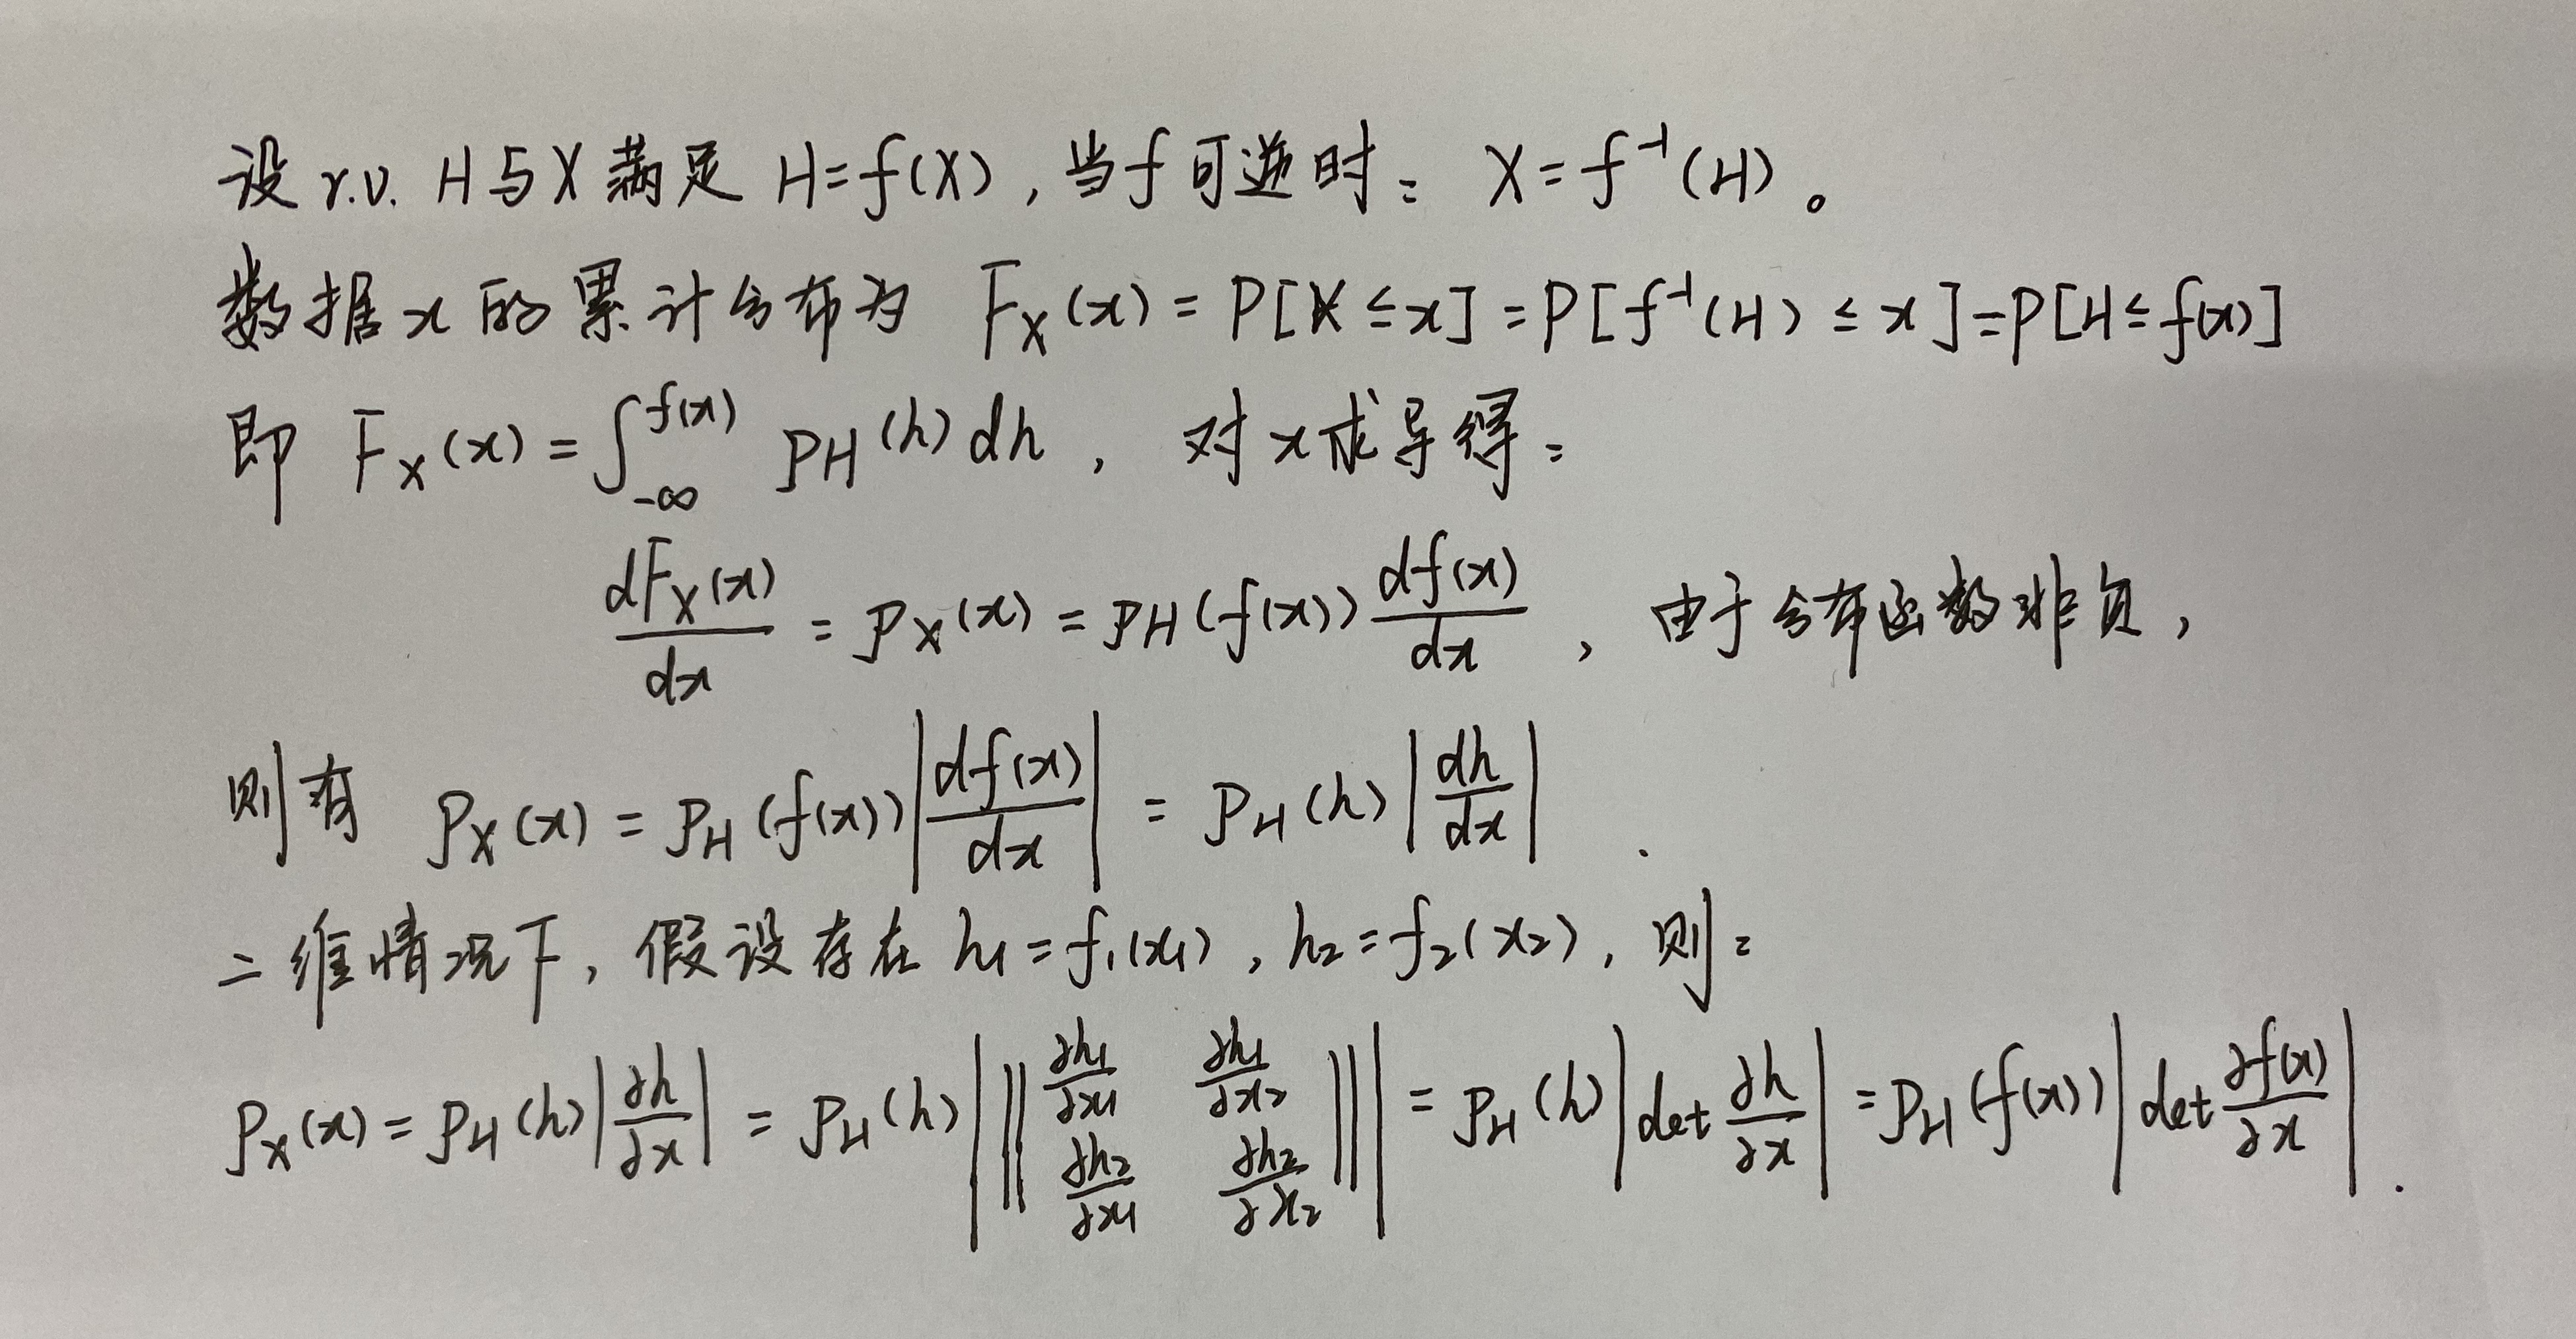 设 r.v. H与X满足 H=f(X), 当f可逆时: X=f⁻¹(H)。
数据x的累计分布为 F_X(x) = P[X≤x] = P[f⁻¹(H) ≤ x] = P[H≤f(x)]
即 F_X(x) = ∫_{-∞}^{f(x)} p_H(h)dh, 对x求导得:
dF_X(x)/dx = p_X(x) = p_H(f(x)) df(x)/dx, 由于分布函数非负,
则有 p_X(x) = p_H(f(x)) |df(x)/dx| = p_H(h) |dh/dx| .
二维情况下, 假设存在 h₁=f₁(x₁), h₂=f₂(x₂), 则:
p_X(x) = p_H(h) |∂h/∂x| = p_H(h) | ‖ ∂h₁/∂x₁ ∂h₁/∂x₂ ∂h₂/∂x₁ ∂h₂/∂x₂ ‖ | = p_H(h) |det ∂h/∂x| = p_H(f(x)) |det ∂f(x)/∂x| .